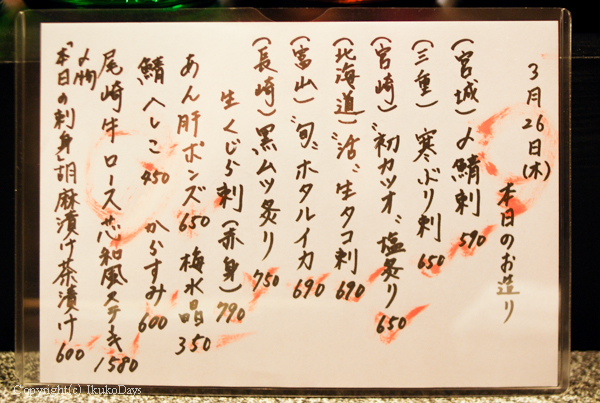 3月26日(木) 本日のお造り
(宮城)〆鯖刺 590
(三重)寒ぶり刺 650
(宮崎)“初カツオ”塩炙り 650
(北海道)“活”生タコ刺 690
(富山)“旬”ホタルイカ 690
(長崎)黒ムツ炙り 750
生くじら刺(赤身) 790
あん肝ポンズ 650 梅水晶 350
鯖へしこ 450 からすみ 600
尾崎牛ロース芯和風ステーキ 1580
〆物
「本日の刺身」胡麻漬け茶漬け 600
Copyright(c) IkukoDays